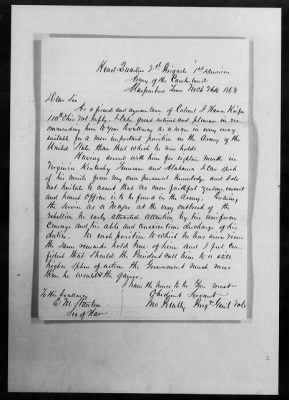 Head Quarters 2d Brigade 1st Division
Army of the Cumberland
Murfreesboro Tenn Mch 24th 1863
Dear Sir
As a friend and acquaintance of Colonel J Warren Keifer
110th Ohio Vol Infty, I take great interest and pleasure in re-
commending him to your Excellency as a man in every way
suitable for a more important position in the Army of the
United States than that which he now holds.
Having served with him for eighteen months in
Virginia Kentucky Tennessee and Alabama I can speak
of his merits from my own personal knowledge, and do
not hesitate to assert that no more faithful zealous earnest
and honest Officer is to be found in the Army. Entering
the service as a Major at the very outbreak of the
rebellion he early attracted attention by his uniform
Courage and his able and conscientious discharge of his
duties. In each position to which he has risen since
the same remarks hold true of him and I feel con-
fident that should the President call him to a still
higher sphere of action the Government much more
than he would be the gainer.
I have the honor to be Your most
Obedient Servant
Jno Beatty Brig Genl Vols
To His Excellency
E M Stanton
Sec of War